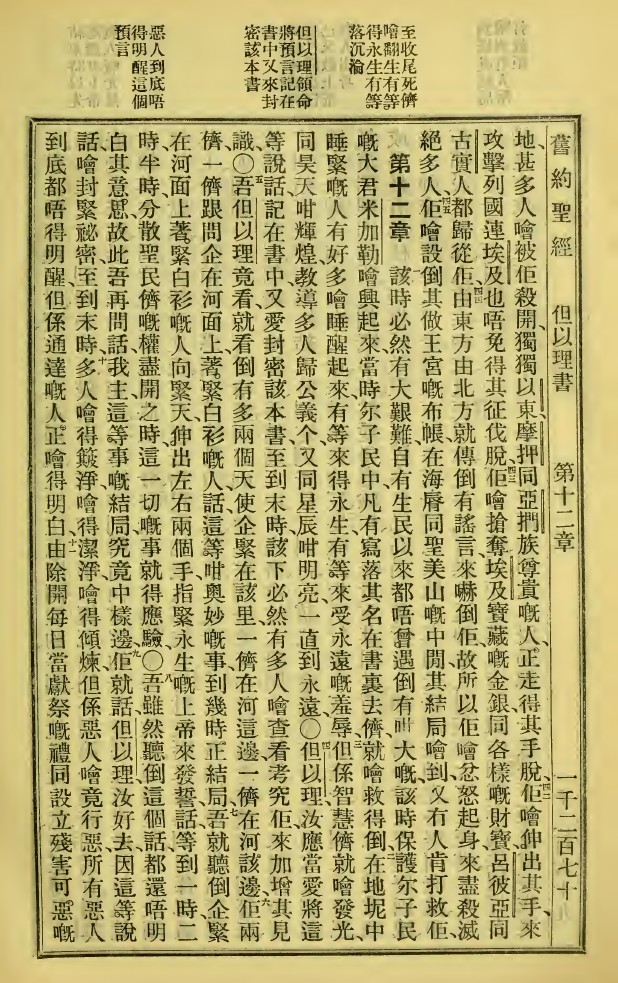 至收尾死儕
噲翻生有等
得永生有等
落沉淪
但以理領命
將預言記在
書中又來封
密該本書
惡人到底唔
得明醒這個
預言
舊約聖經 但以理書 第十二章 一千二百七十
地、甚多人噲被佢殺開、獨獨以東、摩押、同亞捫族尊貴嘅人、正走得其手脫、四二佢噲伸出其手來
攻擊列國、連埃及也唔免得其征伐脫、四三佢噲搶奪埃及寶藏嘅金銀、同各樣嘅財寶、呂彼亞同
古實人都歸從佢、四四由東方由北方就傳倒有謠言來嚇倒佢、故所以佢噲忿怒起身、來盡殺滅
絕多人、四五佢噲設倒其做王宮嘅布帳、在海脣同聖美山嘅中間、其結局噲到、又有人肯打救佢、
第十二章 一該時必然有大艱難、自有生民以來都唔曾遇倒有咁大嘅、該時保護尔子民
嘅大君米加勒噲興起來、當時尔子民中、凡有寫落其名在書裏去儕、就噲救得倒、二在地坭中
睡緊嘅人、有好多噲睡醒起來、有等來得永生、有等來受永遠嘅羞辱、三但係智慧儕就噲發光、
同昊天咁輝煌、教導多人歸公義个、又同星辰咁明亮、一直到永遠○四但以理、汝應當愛將這
等說話記在書中、又愛封密該本書、至到末時、該下必然有多人噲查看考究佢、來加增其見
識○五吾但以理竟看、就看倒有多兩個天使企緊在該里、一儕在河這邊、一儕在河該邊、六佢兩
儕一儕跟問企在河面上著緊白衫嘅人話、這等咁奧妙嘅事、到幾時正結局、七吾就聽倒企緊
在河面上著緊白衫嘅人、向緊天伸出左右兩個手、指緊永生嘅上帝來發誓話、等到一時、二
時、半時、分散聖民儕嘅權盡開之時、這一切嘅事就得應驗○八吾雖然聽倒這個話、都還唔明
白其意思、故此吾再問話、我主、這等事嘅結局究竟中樣邊、九佢就話、但以理汝好去、因這等說
話噲封緊祕密、至到末時、十多人噲得簸淨、噲得潔淨、噲得傾煉、但係惡人噲竟行惡、所有惡人
到底都唔得明醒、但係通達嘅人、正噲得明白、十一由除開每日當獻祭嘅禮、同設立殘害可惡嘅